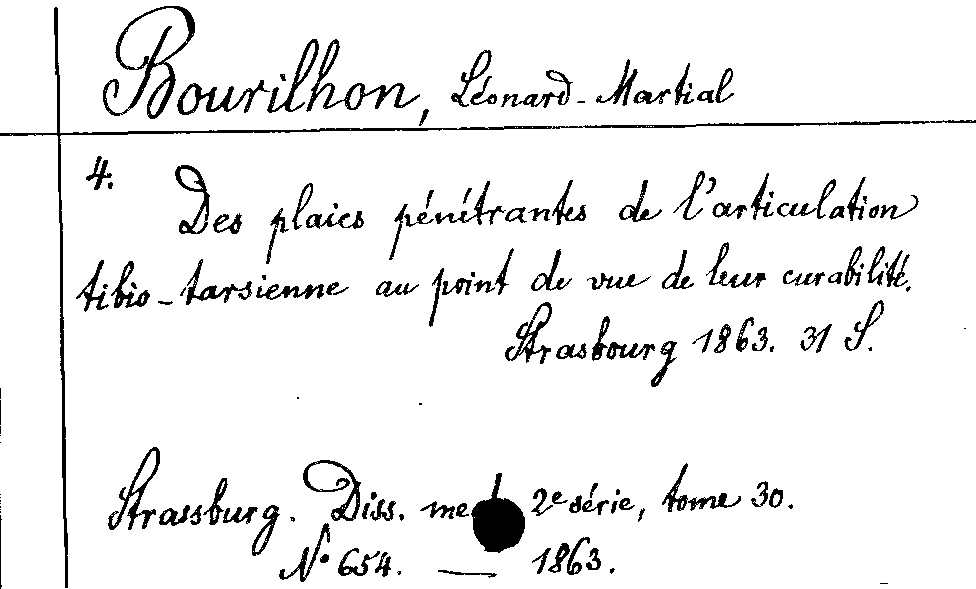 Bourilhon, Léonard-Martial
4. Des plaies pénétrantes de l'articulation
tibio-tarsienne au point de vue de leur curabilité.
Strasbourg 1863. 31 S.
Strassburg. Diss. med 2e série, tome 30.
No 654. — 1863.